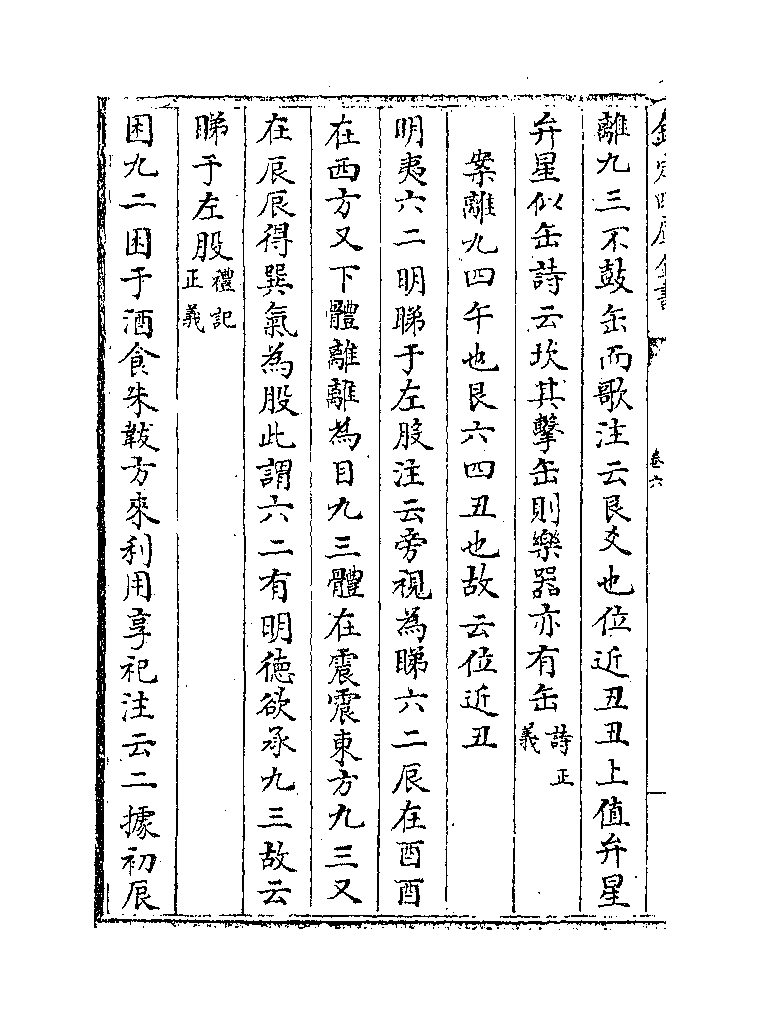 欽定四庫全書
卷六
離九三不鼓缶而歌注云艮爻也位近丑丑上值弁星
弁星似缶詩云坎其擊缶則樂器亦有缶詩正義
案離九四午也艮六四丑也故云位近丑
明夷六二明睇于左股注云旁視為睇六二辰在酉酉
在西方又下體離離為目九三體在震震東方九三又
在辰辰得巽氣為股此謂六二有明德欲承九三故云
睇于左股禮記正義
困九二困于酒食朱韍方來利用享祀注云二據初辰